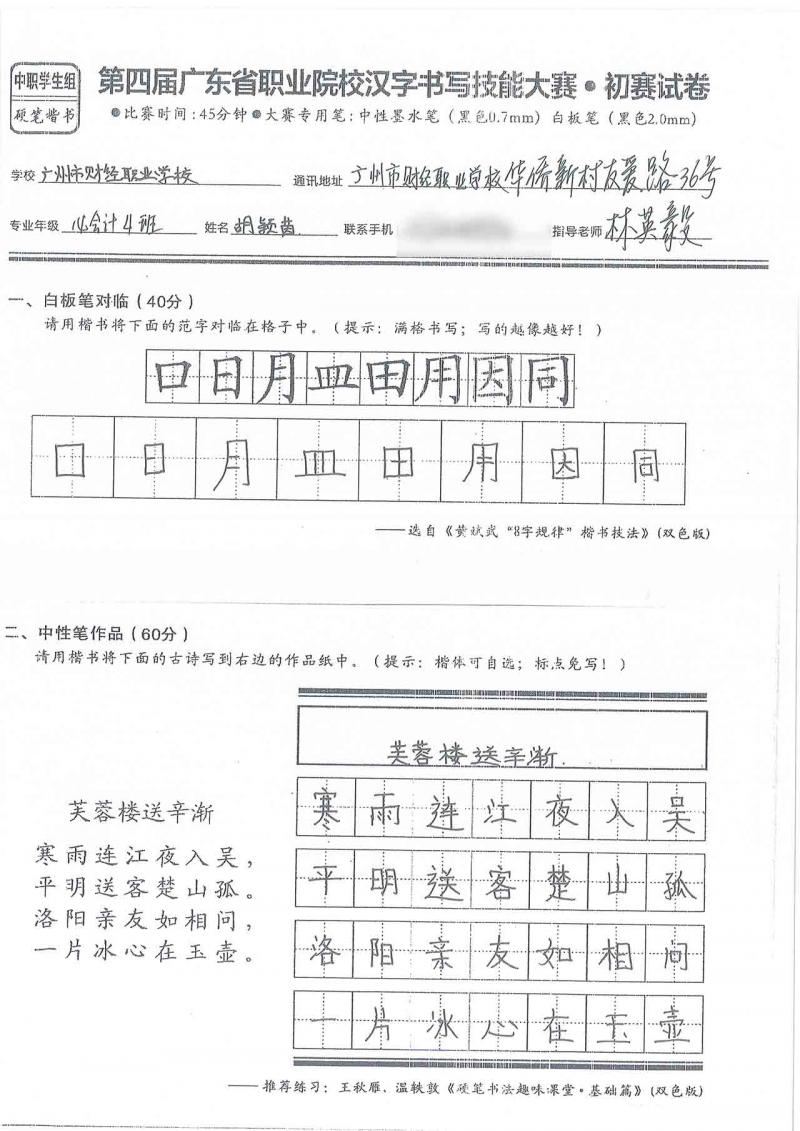 中职学生组
硬笔楷书
第四届广东省职业院校汉字书写技能大赛•初赛试卷
●比赛时间:45分钟●大赛专用笔:中性墨水笔(黑色0.7mm)白板笔(黑色2.0mm)
学校 广州市财经职业学校 通讯地址 广州市财经职业学校华侨新村友爱路36号
专业年级 会计4班 姓名 胡颖茵 联系手机 指导老师 林英毅
一、白板笔对临(40分)
请用楷书将下面的范字对临在格子中。(提示:满格书写;写的越像越好!)
口日月皿田用因同
口日月皿田用因同
——选自《黄斌武“8字规律”楷书技法》(双色版)
二、中性笔作品(60分)
请用楷书将下面的古诗写到右边的作品纸中。(提示:楷体可自选;标点免写!)
芙蓉楼送辛渐
寒雨连江夜入吴,
平明送客楚山孤。
洛阳亲友如相问,
一片冰心在玉壶。
芙蓉楼送辛渐
寒雨连江夜入吴
平明送客楚山孤
洛阳亲友如相问
一片冰心在玉壶
——推荐练习:王秋雁、温轶敦《硬笔书法趣味课堂·基础篇》(双色版)